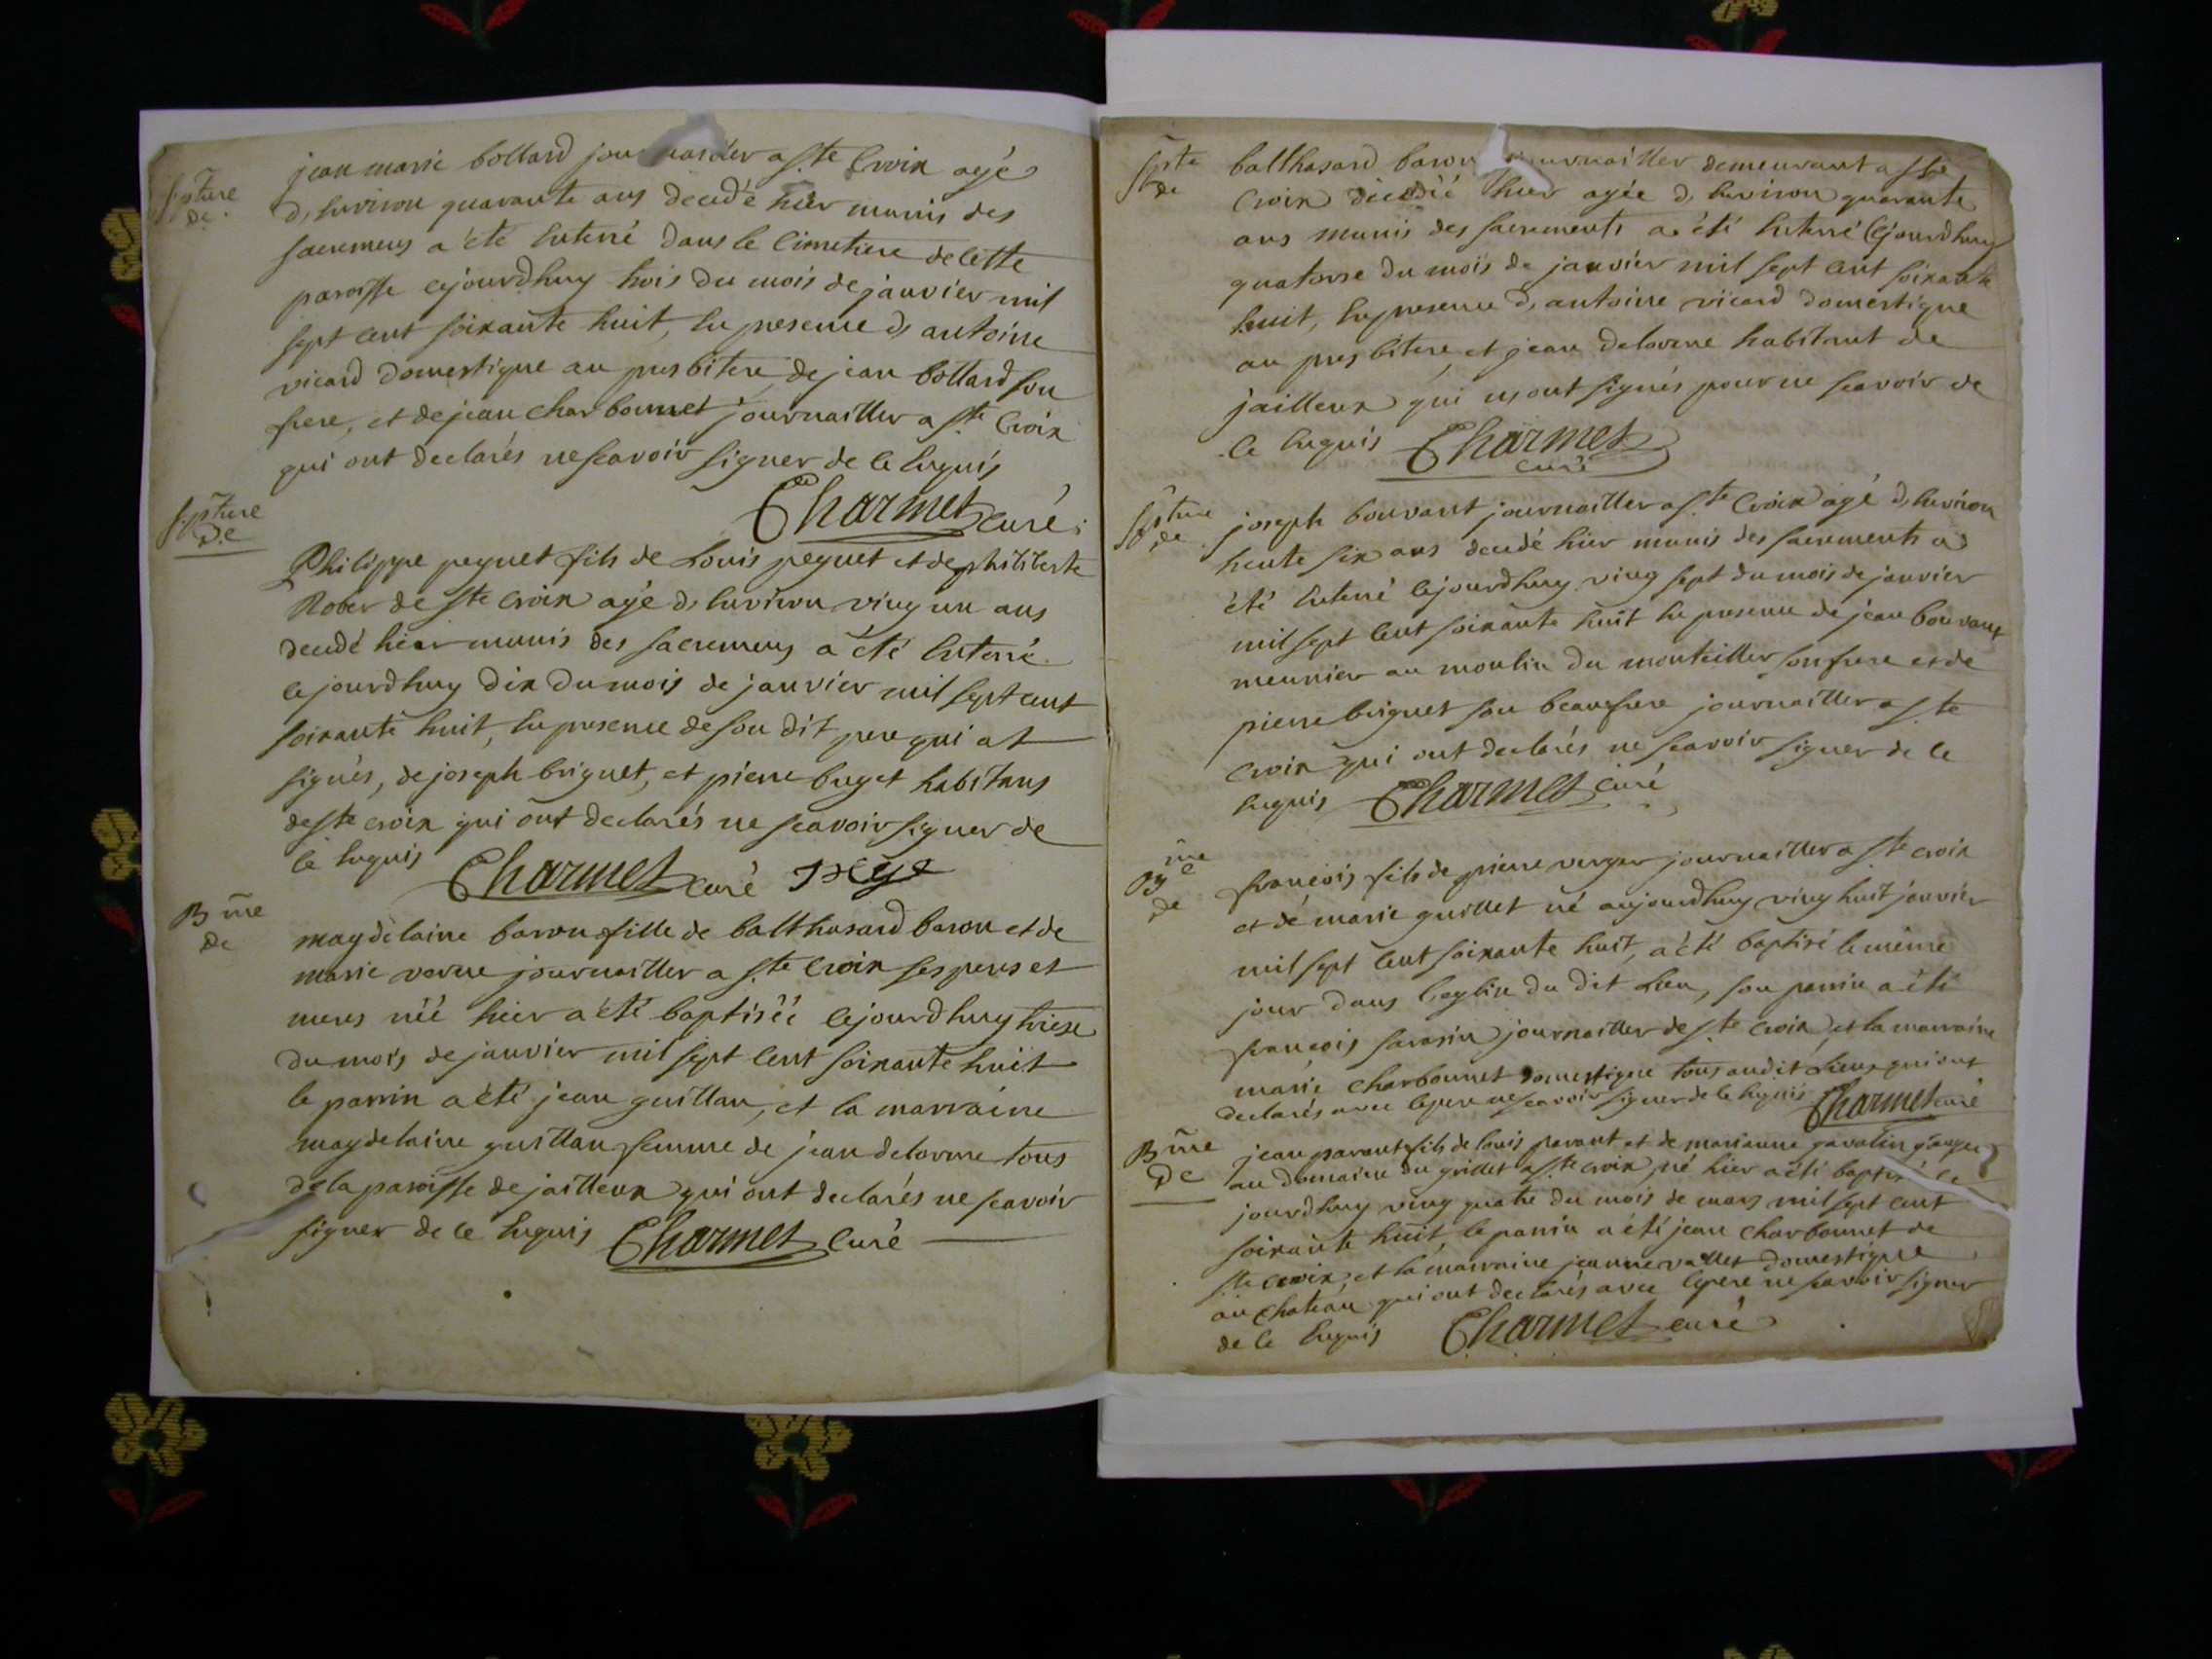 Spture de
jean marie bollard journailler a Ste Croix agé
d'environ quarante ans decedé hier munis des
sacremens a été enterré dans le cimetiere de cette
paroisse cejourdhuy trois du mois de janvier mil
sept cent soixante huit, en presence d'antoine
vicard domestique au presbitere, de jean bollard son
frere, et de jean charbonnet journailler a Ste Croix
qui ont declarés ne scavoir signer de ce enquis
Charmet curé
Spture de
Philippe peguet fils de Louis peguet et de philiberte
Rober de Ste Croix agé d'environ ving un ans
decedé hier munis des sacremens a été enterré
cejourdhuy dix du mois de janvier mil sept cent
soixante huit, en presence de son dit pere qui at
signés, de joseph briguet, et pierre buget habitans
de Ste croix qui ont declarés ne scavoir signer de
ce enquis Charmet curé
Bme de
magdelaine baron fille de balthasard baron et de
marie verne journailler a Ste Croix ses peres et
meres néé hier a été baptiséé cejourdhuy treise
du mois de janvier mil sept cent soixante huit
le parrin a été jean guillau, et la marraine
magdelaine guillau femme de jean delorme tous
de la paroisse de jailleux qui ont declarés ne scavoir
signer de ce enquis Charmet Curé
Spte de
balthasard baron journailler demeurant a Ste
Croix décédéé hier agée d'environ quarante
ans munis des sacrements a été enterré cejourdhuy
quatorse du mois de janvier mil sept cent soixante
huit, en presence d'antoine vicard domestique
au presbitere, et jean delorme habitant de
jailleux qui n'ont signés pour ne scavoir de
ce enquis Charmet
curé
Spture de
joseph bouvant journailler a Ste Croix agé d'environ
trente six ans decedé hier munis des sacrements a
été enterré cejourdhuy ving sept du mois de janvier
mil sept cent soixante huit en presence de jean bouvant
meunier au moulin du monteiller son frere et de
pierre briguet son beaufrere journailler a Ste
Croix qui ont declarés ne scavoir signer de ce
enquis Charmet Curé
Bme de
francois fils de pierre verger journailler a Ste croix
et de marie guillet né aujourdhuy ving huit janvier
mil sept cent soixante huit, a été baptisé le même
jour dans l'eglise du dit Lieu, son parrin a été
francois sarasin journailler de Ste Croix, et la marraine
marie charbonnet domestique tous audit Lieux qui ont
declarés avec le pere ne scavoir signer de ce enquis Charmet curé
Bme De
jean parant fils de louis parant et de marianne
au domaine du grillet a Ste croix né hier a été baptisé ce
jourdhuy ving quatre du mois de mars mil sept cent
soixante huit, le parrin a été jean charbonnet de
Ste Croix, et la marraine jeanne vallet domestique
au chateau qui ont declarés avec le pere ne scavoir signer
de ce enquis Charmet curé